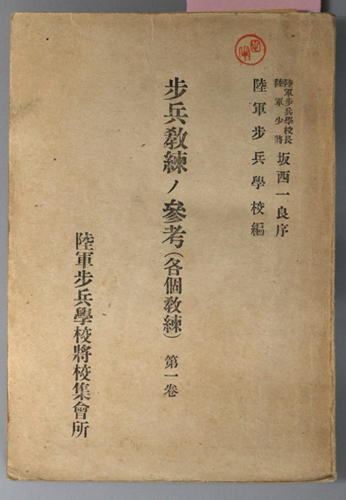 陸軍步兵學校長
陸軍少將
坂西一良序
陸軍步兵學校編
步兵敎練ノ參考(各個敎練)第一卷
陸軍步兵學校將校集會所